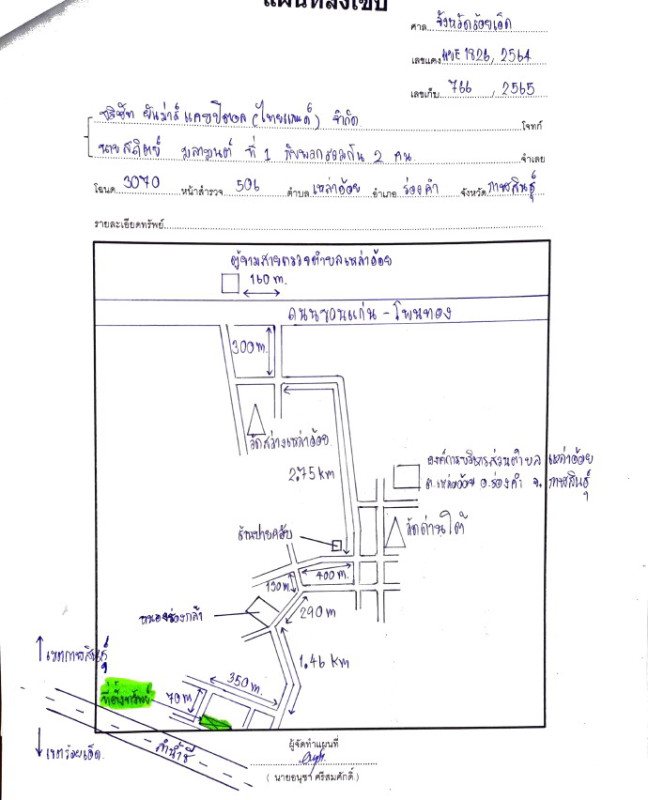 แผนที่สังเขป
ศาล จังหวัดร้อยเอ็ด
เลขแดง ผบE 1826, 2564
เลขเก็บ 766 , 2565
บริษัท ยันม่าร์ แคปปิตอล (ไทยแลนด์) จำกัด โจทก์
ที่ 1 กับพวกรวมกัน 2 คน จำเลย
โฉนด 3070 หน้าสำรวจ 506 ตำบล เหล่าอ้อย อำเภอ ร่องคำ จังหวัด กาฬสินธุ์
รายละเอียดทรัพย์
ตู้ยามสายตรวจตำบลเหล่าอ้อย
160 m.
ถนนขอนแก่น - โพนทอง
300 m.
วัดสว่างเหล่าอ้อย
2.75 km
องค์การบริหารส่วนตำบล เหล่าอ้อย
ต.เหล่าอ้อย อ.ร่องคำ จ. กาฬสินธุ์
วัดด่านใต้
400 m.
290 m
1.46 km
เขตกาฬสินธุ์
350 m.
ที่ตั้งทรัพย์
70 m
ลำน้ำชี
เขตร้อยเอ็ด.
ผู้จัดทำแผนที่
( นายอนุชา ศรีสมศักดิ์ )